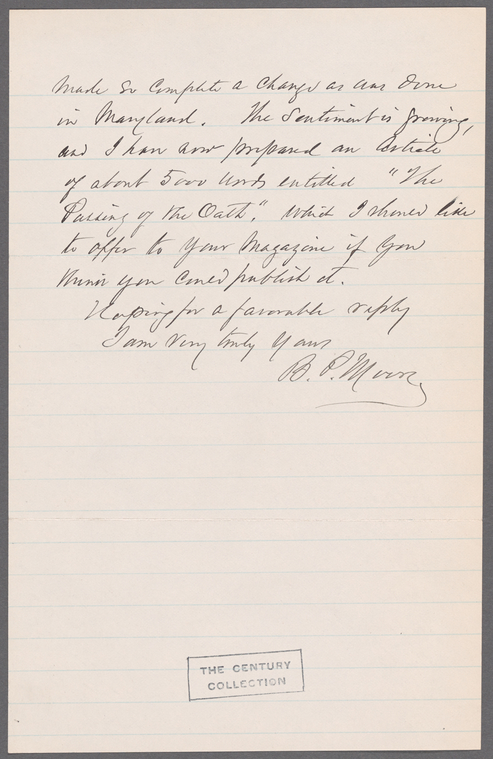 made so complete a change as was done
in Maryland. The Sentiment is growing,
and I have now prepared an Article
of about 5000 words entitled "The
Passing of the Oath", which I should like
to offer to your Magazine if you
think you could publish it.
Hoping for a favorable reply
I am very truly yours
B. P. Moore
THE CENTURY
COLLECTION